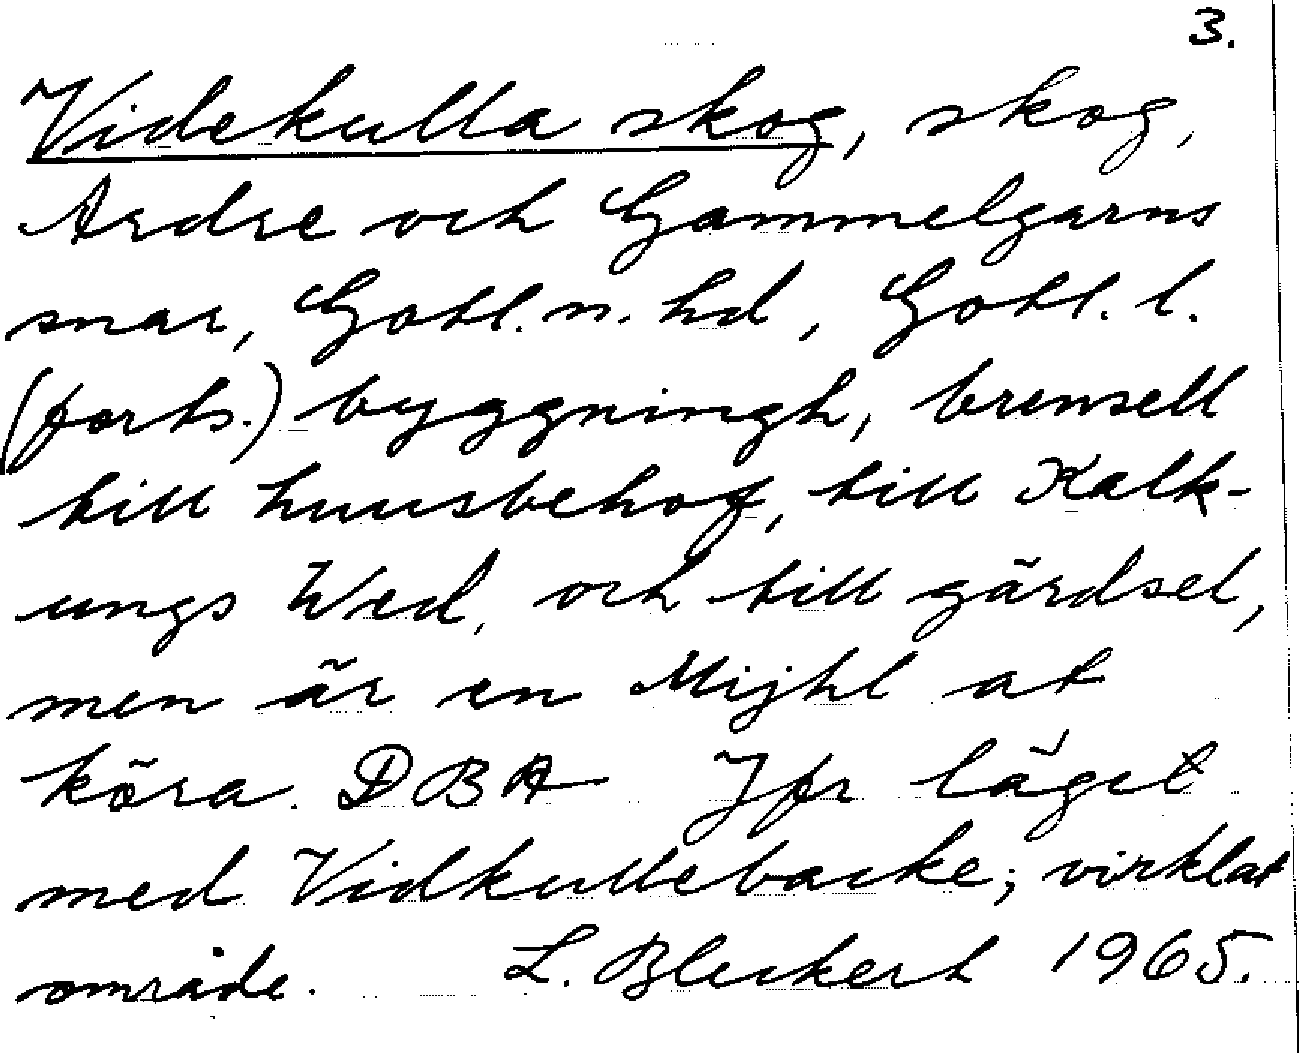 3.
Videkulla skog, skog,
Ardre och Gammelgarns
snar, Gotl. n. hd, Gotl. l.
(forts.) byggningh, brensell
till huusbehof, till Kalk-
ungs Wed, och till gärdsel,
men är en Mijhl at
köra. DBA Jfr läget
med Vidkullebacke; cirklat
område. L. Bleckert 1965.